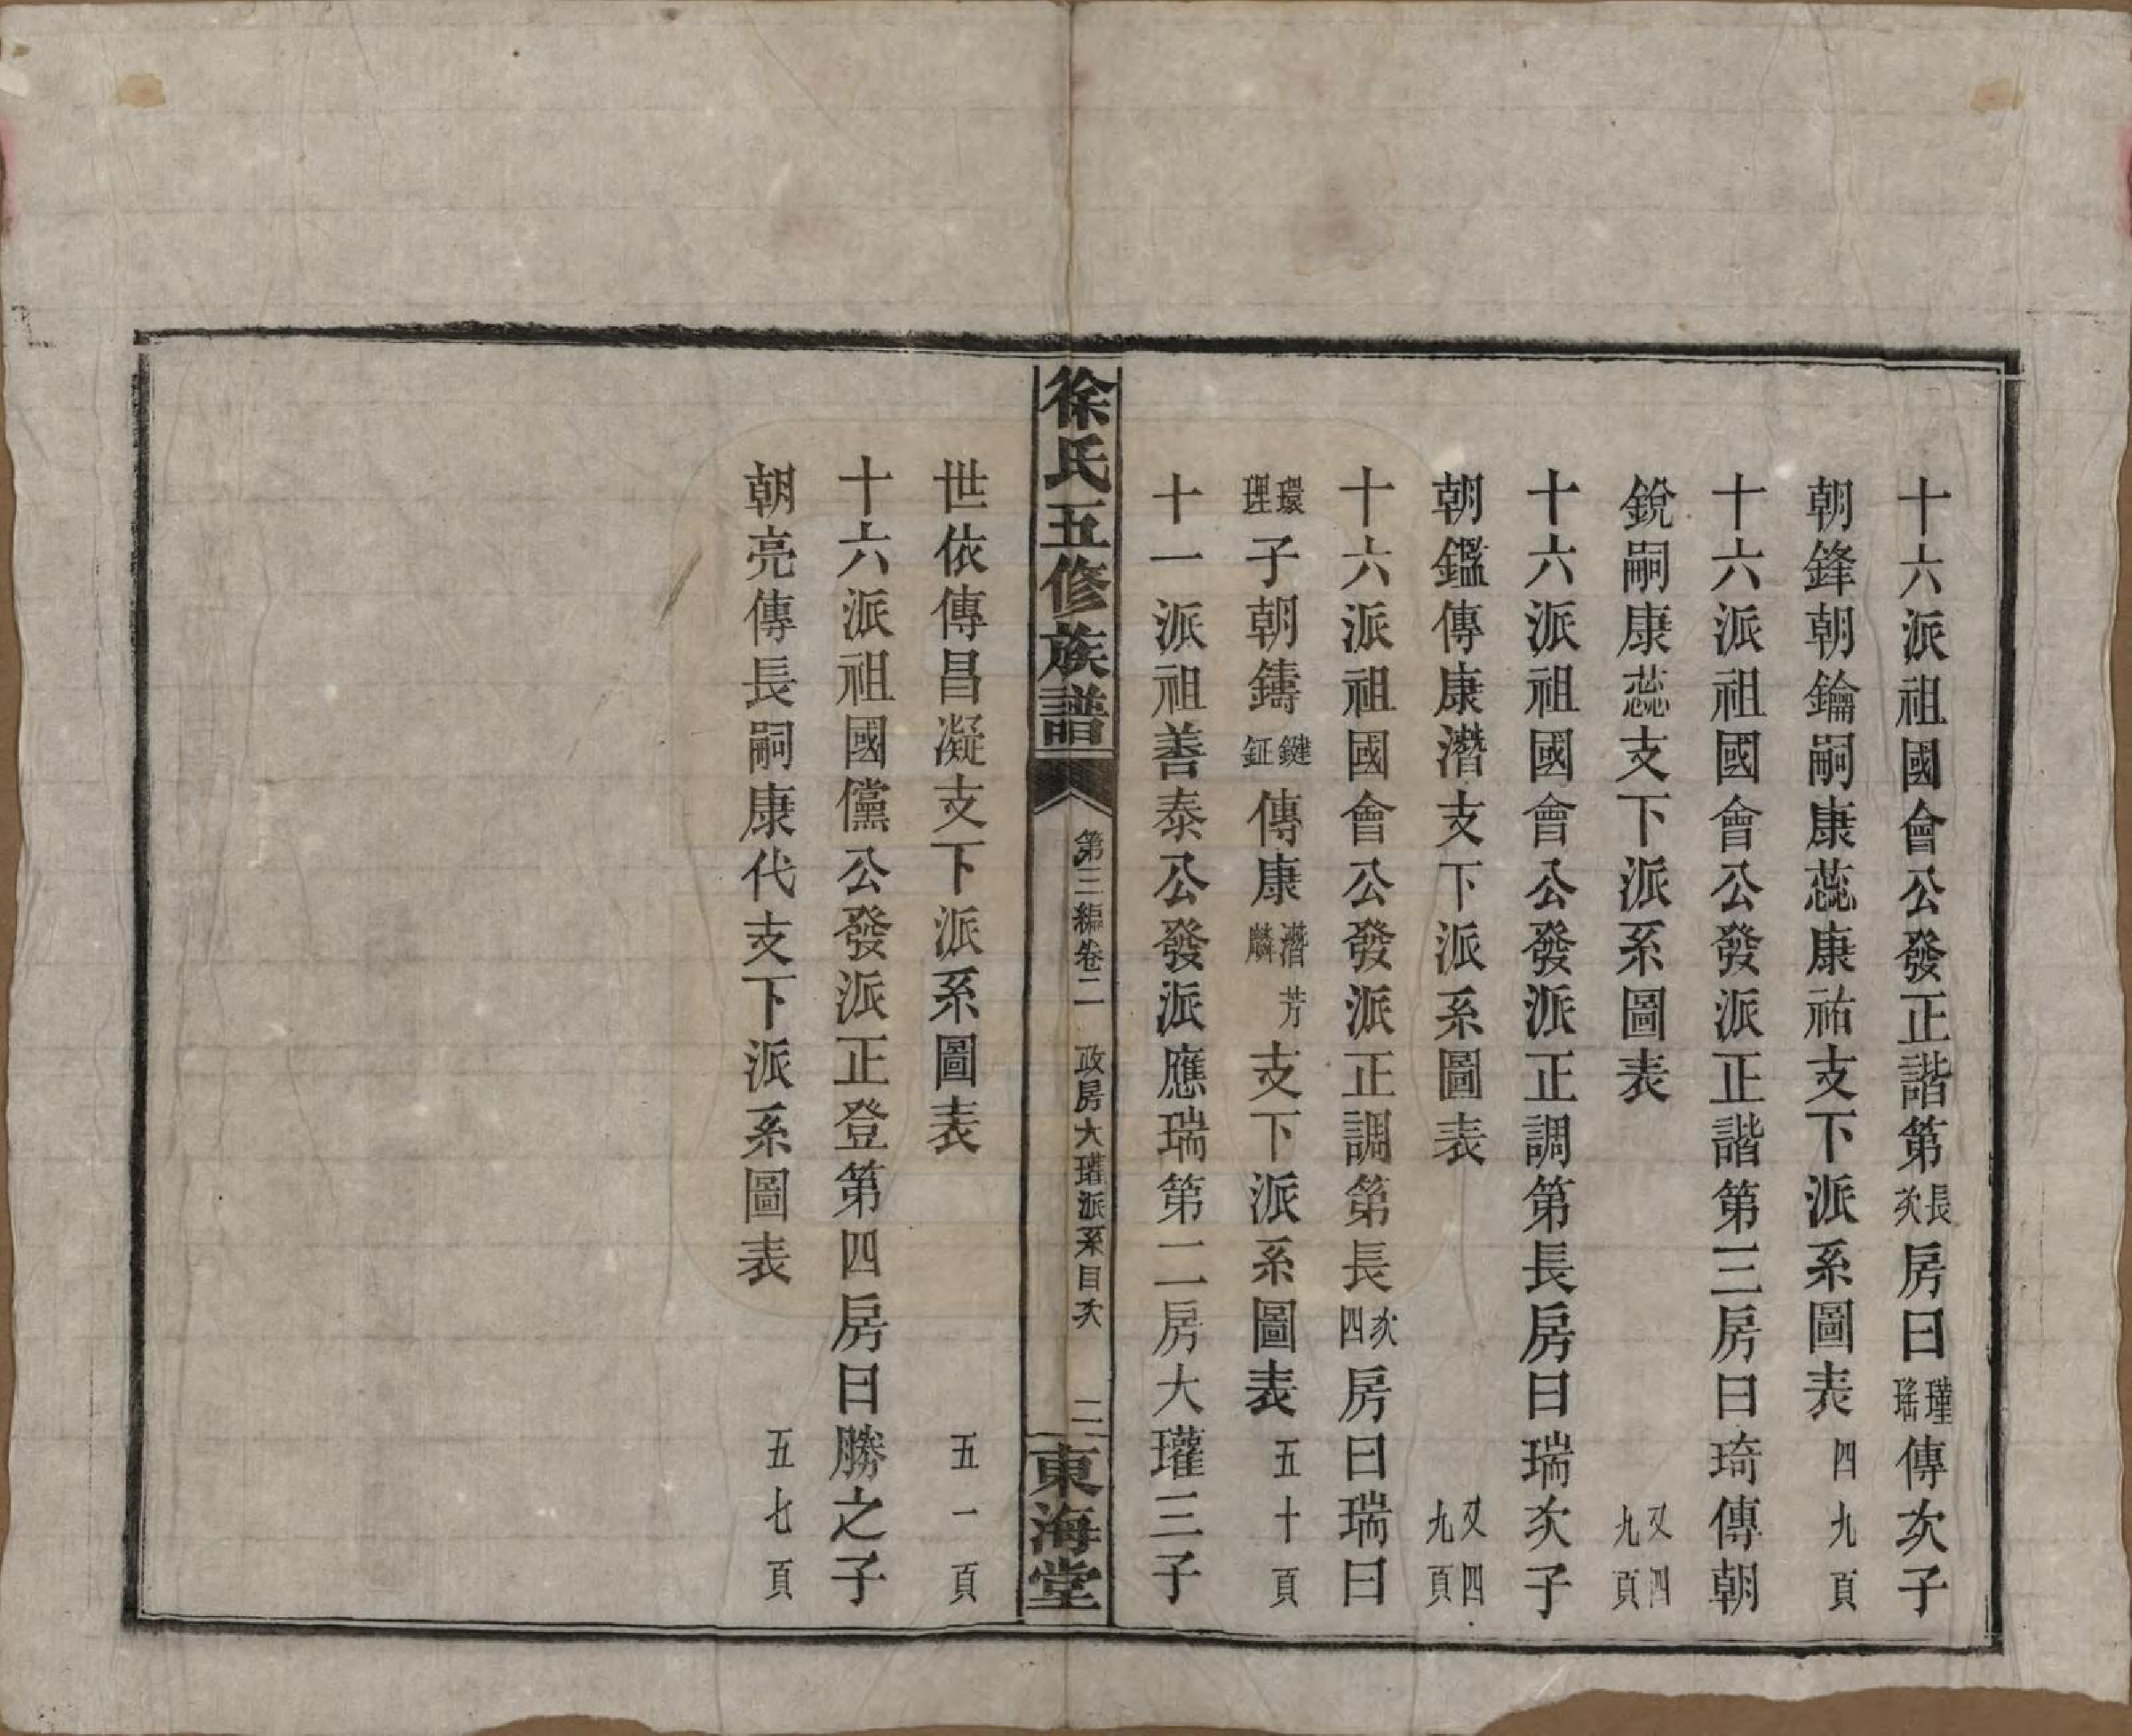 十六派祖國會公發正諧第長次房曰瑾瑤傳次子
朝鋒朝鑰嗣康蕊康祐支下派系圖表四九頁
十六派祖國會公發派正諧第三房曰琦傳朝
銳嗣康蕊支下派系圖表又四九頁
十六派祖國會公發派正調第長房曰瑞次子
朝鑑傳康潛支下派系圖表又四九頁
十六派祖國會公發派正調第長次四房曰瑞曰
環理子朝鑄鍵鉦傳康潛麟芳支下派系圖表五十頁
十一派祖善泰公發派應瑞第二房大瓘三子
徐氏五修族譜
第三編卷二 政房大瓘派系目次 二
東海堂
世依傳昌凝支下派系圖表五一頁
十六派祖國儻公發派正登第四房曰勝之子
朝亮傳長嗣康代支下派系圖表五七頁